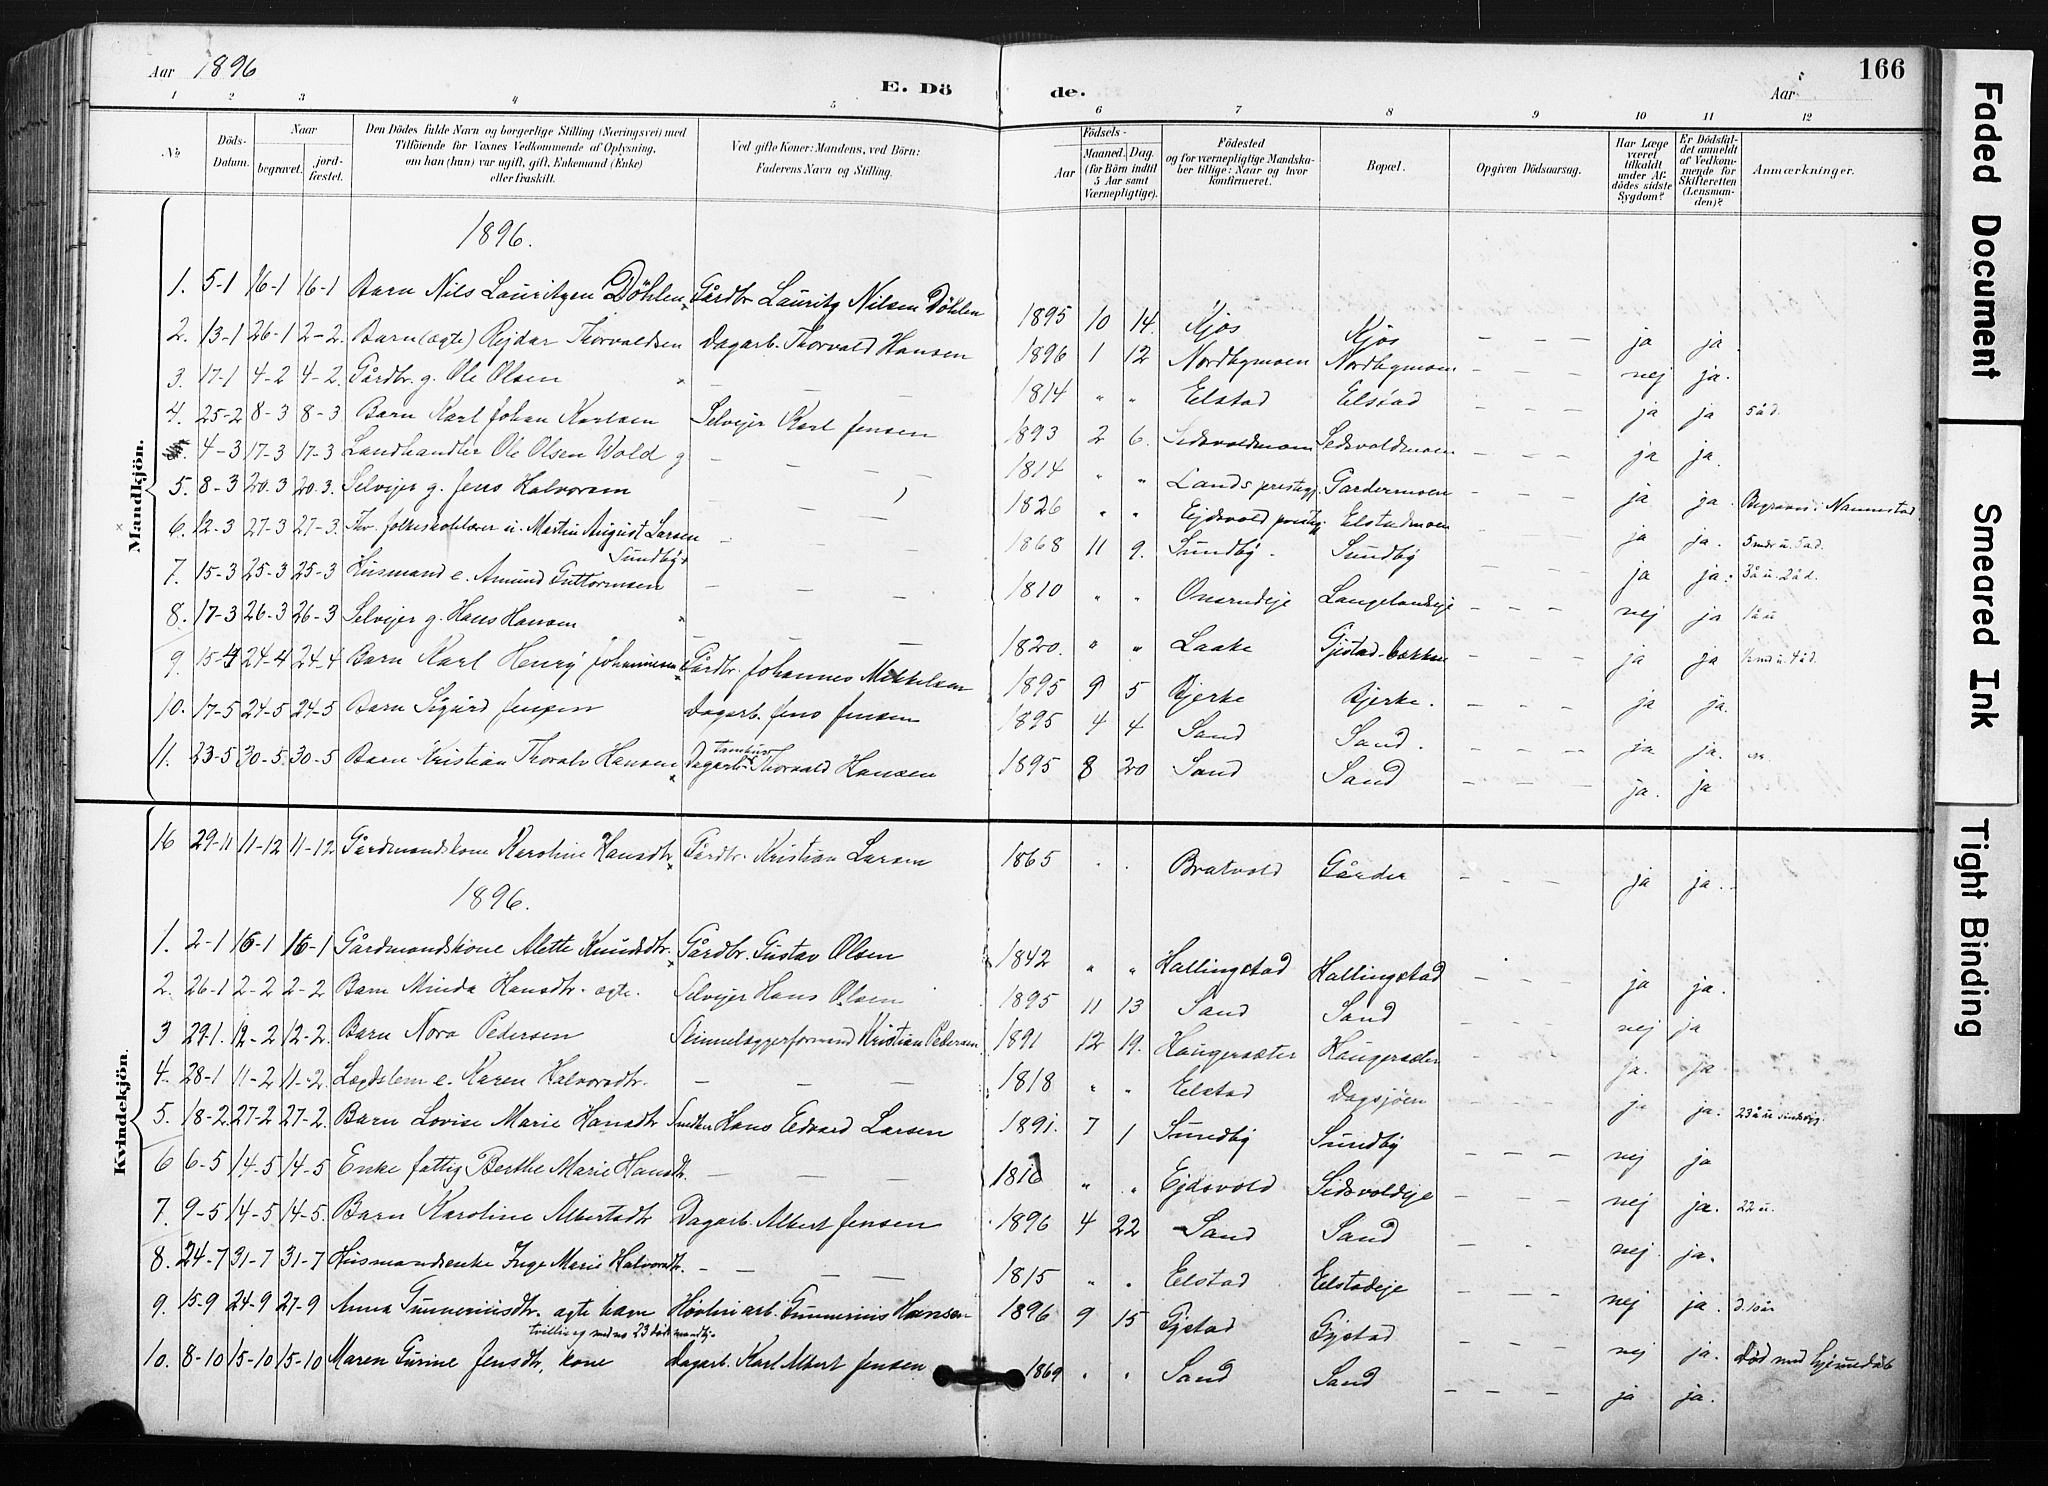 Aar 1896 E. Döde. Aar 166
1 2 3 4 5 6 7 8 9 10 11 12
No. Döds-Datum. Naar begravet. jord-fæstet. Den Dödes fulde Navn og borgerlige Stilling (Næringsvei) med Tilföiende for Voxnes Vedkommende af Oplysning, om han (hun) var ugift, gift, Enkemand (Enke) eller fraskilt. Ved gifte Koner: Mandens, ved Börn: Faderens Navn og Stilling. Födsels- Aar Maaned. Dag. (for Börn indtil 5 Aar samt Værnepligtige). Födested og for værnepligtige Mandska-ber tillige: Naar og hvor konfirmeret. Bopæl. Opgiven Dödsaarsag. Har Læge været tilkaldt under Af-dödes sidste Sygdom? Er Dödsfal-det anmeldt af Vedkom-mende for Skifteretten (Lensman-den)? Anmærkninger.
Mandkjön.
1896.
1. 5-1 16-1 16-1 Barn Nils Lauritzen Döhlen Gårdbr. Lauritz Nilsen Döhlen 1895 10 14. Kjos Kjos - - - ja ja.
2. 13-1 26-1 2-2. Barn (ægte) Rejdar Thorvaldsen Dagarb. Thorvald Hansen 1896 1 12 Nordbymoen Nordbymoen - - - nej ja.
3. 17-1 4-2 4-2. Gårdbr. g. Ole Olsen - - 1814 " " Elstad Elstad - - - ja ja 5 å d.
4. 25-2 8-3 8-3 Barn Karl Johan Karlsen Selvejer Karl Jensen 1893 2 6. Sedsvoldmoen Sedsvoldmoen - - - ja ja.
4-3 17-3 17-3 Landhandler Ole Olsen Wold g - - - 1814 " " Lands prestegj. Gardermoen - - - ja ja. Begraves i Nannestad
5. 8-3 20.3 20.3. Selvejer g. Jens Halvorsen - 1826 " " Ejdsvold prestegj. Elstadmoen - - - ja ja. 5 mdr u. 5 å d.
6. 12-3 27-3 27-3. Thv. folkeskolelærer u. Martin August Larsen Sundby - - - 1868 11 9. Sundby. Sundby - - - ja ja. 3 å u. 2 å d.
7. 15-3 25-3 25-3 Husmand e. Amund Guttormsen - - - 1810 " " Onsrudeje Langelandseje - - - nej ja 1 å u
8. 17-3 26-3 26-3 Selvejer g. Hans Hansen - - 1820. " " Laake Gjestad-bækken - - - ja ja
9. 15-4 24-4 24-4 Barn Karl Henry Johannesen Gårdbr. Johannes Mikkelsen 1895 9 5 Bjerke Bjerke. - - - ja ja.
10. 17-5 24-5 24-5 Barn Sigurd Jensen Dagarb. Jens Jensen 1895 4 4 Sand Sand. - - - ja ja.
11. 23-5 30-5. 30-5 Barn Kristian Thoralv Hansen Dagarb. Thorvald Hansen 1895 8 20 Sand Sand - - - ja. ja
Kvindekjön.
16 29-11 11-12 11-12. Gårdmandskone Karoline Hansdtr Gårdbr. Kristian Larsen 1865 . . Bratvold Gårder - - - ja ja.
1896.
1. 2-1 16-1 16-1 Gårdmandskone Alette Knudsdtr. Gårdbr. Gustav Olsen 1842 " " Hallingstad Hallingstad - - - ja ja.
2. 26-1 2-2 2-2 Barn Minda Hansdtr. ægte. Selvejer Hans Olsen 1895 11 13 Sand Sand - - - nej ja
3 29-1. 12-2 12-2. Barn Nora Pedersen Skinnelæggerformand Kristian Pedersen 1891 12 19. Haugersæter Haugersæter - - - ja. ja
4. 28-1 11-2 11-2. Lægdslem e. Karen Halvorsdtr. - - - 1818 " " Elstad Dagsjöen - - - ja ja. 23 å u
5. 18-2 27-2 27-2. Barn Lovise Marie Hansdtr Snedker Hans Edvard Larsen 1891. 7 1 Sundby Sundby - - - nej ja
6 6-5 14-5 14-5 Enke fattig Berthe Marie Hansdtr. - - - " " Ejdsvold Sedsvoldeje - - - nej ja. 22 u.
7. 9-5 14-5. 14-5. Barn Karoline Albertsdtr Dagarb. Albert Jensen 1896 4 22 Sand Sand - - - nej. ja.
8. 24-7 31-7 31-7 Husmandsenke Inge Marie Halvorsdtr. - - - 1815 " " Elstad Elstadeje - - - nej ja.
9. 15-9 24-9 27-9 Anna Gunneriusdtr. ægte barn Hövleriarb. Gunnerius Hansen 1896 9 15 Gjstad Gjstad - - - nej ja.
tvilling med no 23 mandkj.
10. 8-10 15-10 15-10 Maren Gurine Jensdtr, kone Dagarb. Karl Albert Jensen. 1869 . . Sand Sand - - - ja ja. Död med hjemmedåb
Faded Document
Smeared Ink
Tight Binding